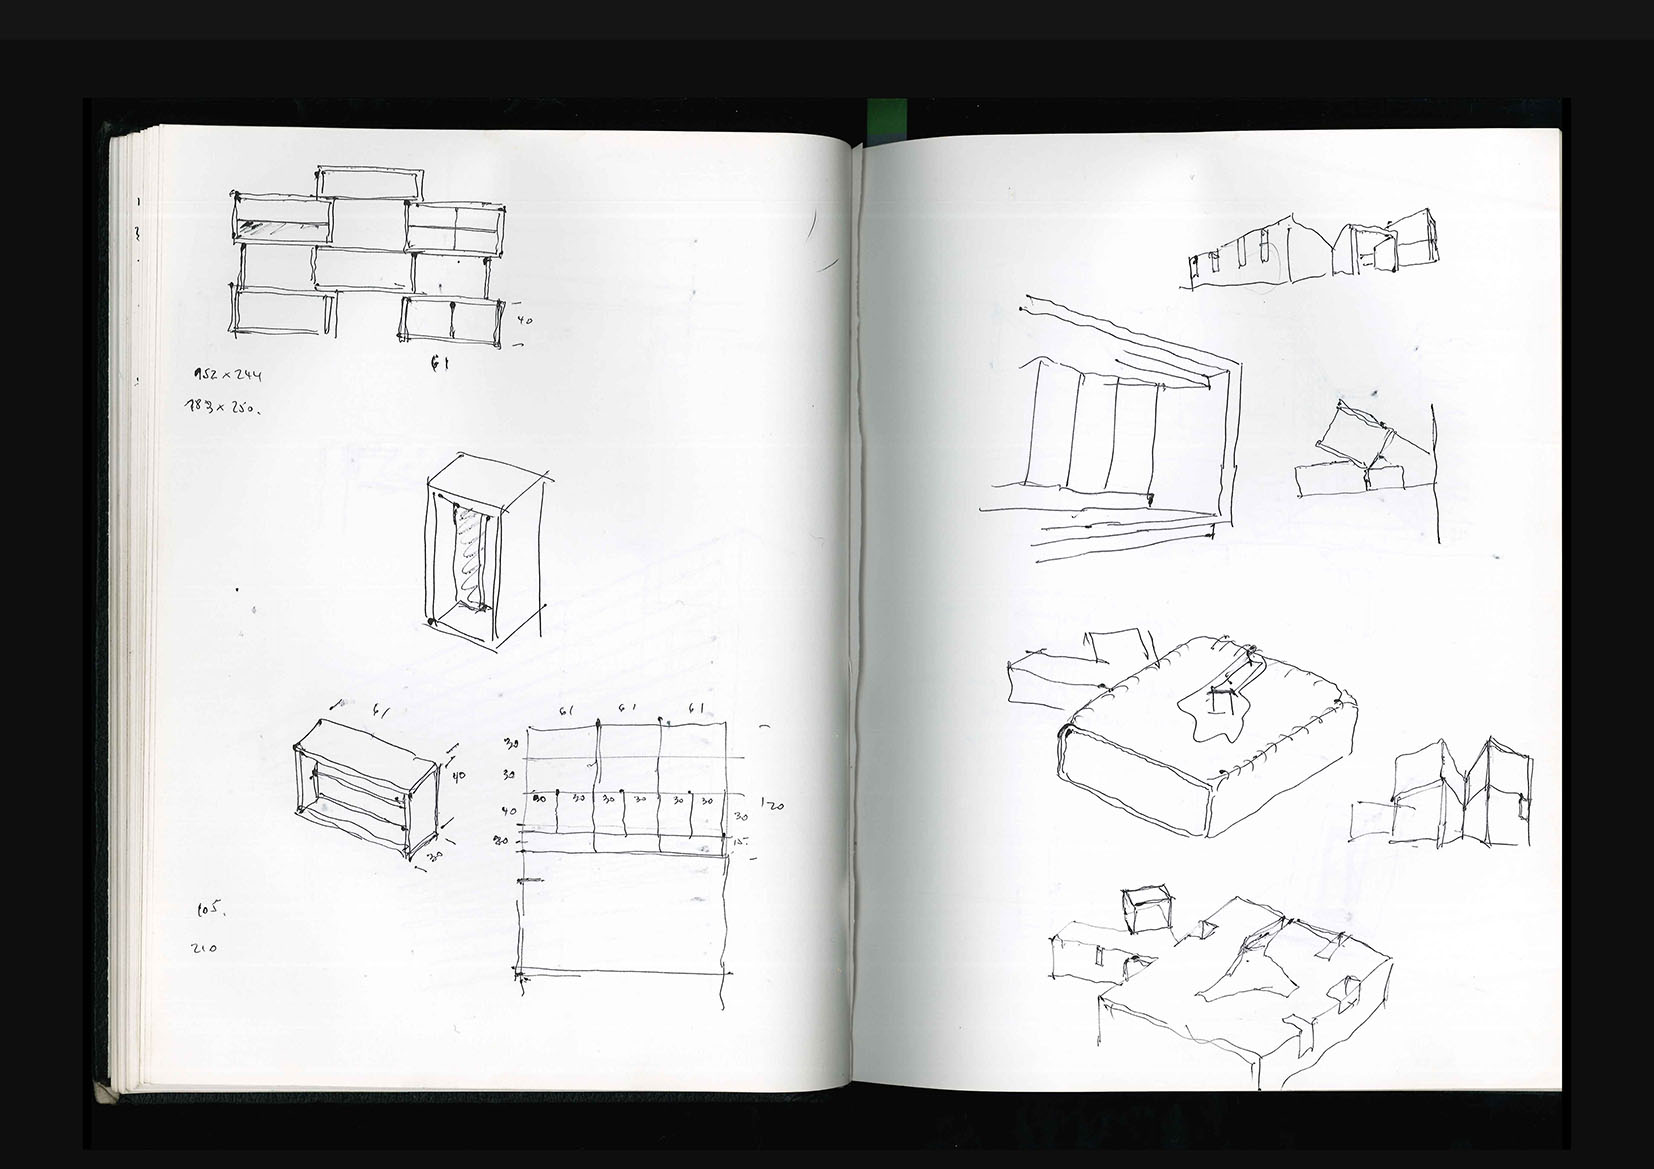 40
61
952 x 244
183 x 250.
61
40
30
61 61 61
30
30
30 30 30 30 30 30
40
30
120
30
15.
105.
210